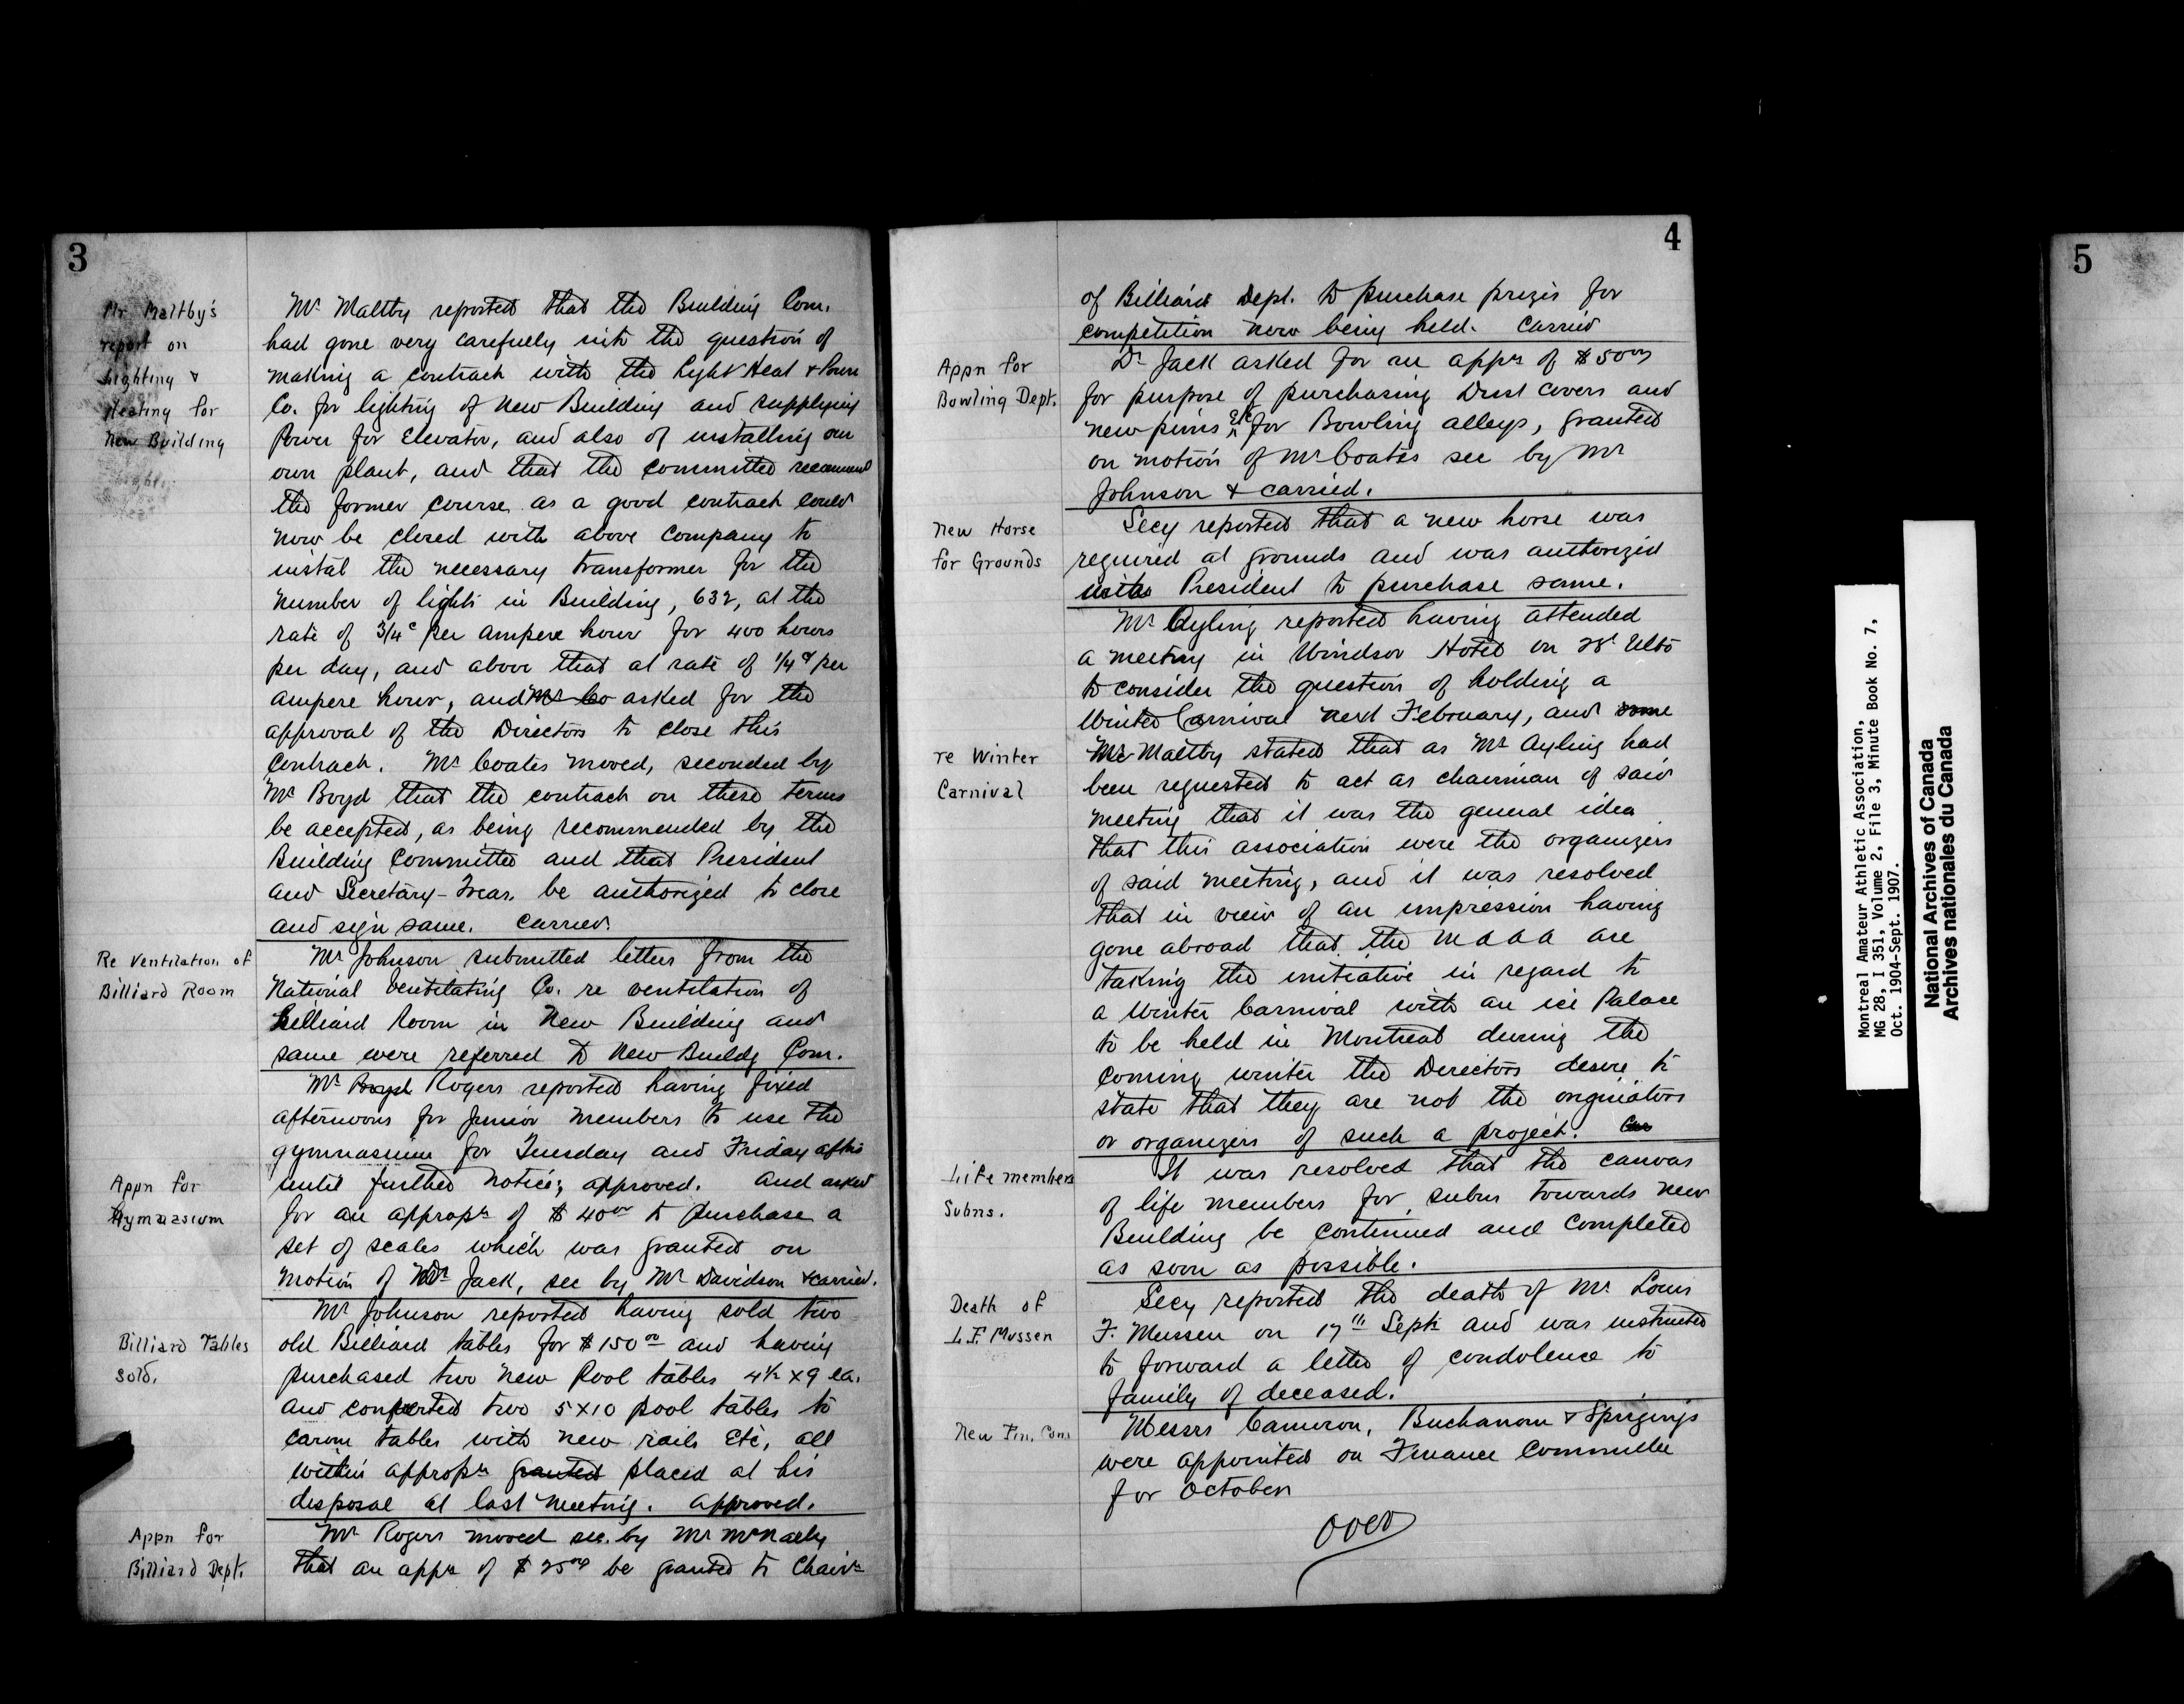 3
Mr. Maltby's
report on
Lighting &
Heating for
New Building
Mr Maltby reported that the Building Com.
had gone very carefully into the question of
making a contract with the Light Heat & Power
Co. for lighting of New Building and supplying
Power for Elevator, and also of installing our
own plant, and that the committee recommend
the former course as a good contract could
now be closed with above Company to
instal the necessary transformer for the
number of lights in Building, 632, at the
rate of 3/4c per ampere hour for 400 hours
per day, and above that at rate of 1/4c per
ampere hour, and Mr Co asked for the
approval of the Directors to close this
Contract. Mr Coates moved, seconded by
Mr Boyd that the contract on these terms
be accepted, as being recommended by the
Building Committee and that President
and Secretary-Treas. be authorized to close
and sign same. Carried.
Re Ventilation of
Billiard Room
Mr Johnson submitted letters from the
National Ventilating Co. re ventilation of
Billiard Room in New Building and
same were referred to New Buildg Com.
Mr Boyd Rogers reported having fixed
afternoons for Junior members to use the
gymnasium for Tuesday and Friday afts
until further notice; approved. And asked
Appn for
Gymnasium
for an appropn of $40 00 to purchase a
set of scales which was granted on
motion of Dr Jack, sec by Mr Davidson & carried.
Mr Johnson reported having sold two
Billiard Tables
sold.
old Billiard tables for $150 00 and having
purchased two new Pool tables 4½ x 9 ea.
and converted two 5 x 10 pool tables to
carom tables with new rails Etc, all
within appropn granted placed at his
disposal at last meeting. approved.
Appn for
Billiard Dept.
Mr Rogers moved sec. by Mr McNally
that an appn of $25 00 be granted to Chairn
4
of Billiard Dept. to purchase prizes for
competition now being held. Carried
Appn for
Bowling Dept.
Dr Jack asked for an appn of $50 00
for purpose of purchasing Dust Covers and
new pins Etc for Bowling alleys, granted
on motion of Mr Coates sec by Mr
Johnson & carried.
New Horse
for Grounds
Secy reported that a new horse was
required at grounds and was authorized
with President to purchase same.
Mr Ayling reported having attended
a meeting in Windsor Hotel on 28t Ulto
to consider the question of holding a
Winter Carnival next February, and some
re Winter
Carnival
Mr Maltby stated that as Mr Ayling had
been requested to act as chairman of said
meeting that it was the general idea
that this association were the organizers
of said meeting, and it was resolved
that in view of an impression having
gone abroad that the M A A A are
taking the initiative in regard to
a Winter Carnival with an ice Palace
to be held in Montreal during the
coming winter the Directors desire to
state that they are not the originators
or organizers of such a project. Car
Life members
Subns.
It was resolved that the canvas
of life members for subns towards new
Building be continued and completed
as soon as possible.
Death of
L.F. Mussen
Secy reported the death of Mr Louis
F. Mussen on 17th Sept. and was instructed
to forward a letter of condolence to
family of deceased.
New Fin. Com
Messrs Cameron, Buchanan & Spriggings
were appointed on Finance Committee
for October
over
Montreal Amateur Athletic Association,
MG 28, I 351, Volume 2, File 3, Minute Book No. 7,
Oct. 1904-Sept. 1907.
National Archives of Canada
Archives nationales du Canada
5